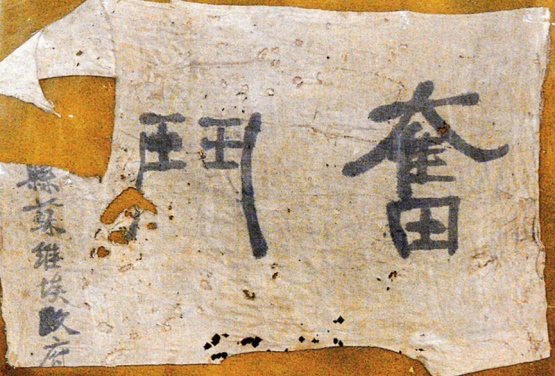 奮鬥
縣蘇維埃政府